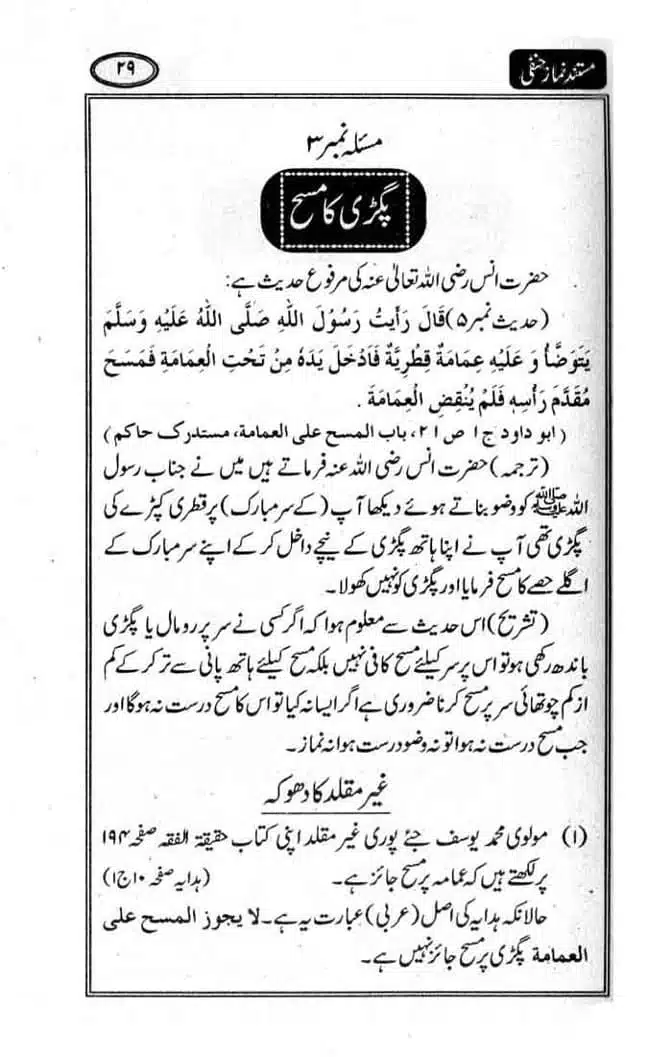 مستند نماز حنفی
۲۹
مسئلہ نمبر ۳
پگڑی کا مسح
حضرت انس رضی اللہ تعالیٰ عنہ کی مرفوع حدیث ہے:
(حدیث نمبر ۵) قَالَ رَأَيْتُ رَسُوْلَ اللهِ صَلَّى اللهُ عَلَيْهِ وَسَلَّمَ
يَتَوَضَّأُ وَ عَلَيْهِ عِمَامَةٌ قِطْرِيَّةٌ فَاَدْخَلَ يَدَهٗ مِنْ تَحْتِ الْعِمَامَةِ فَمَسَحَ
مُقَدَّمَ رَأْسِهٖ فَلَمْ يُنْقِضِ الْعِمَامَةَ .
(ابو داود ج ۱ ص ۲۱، باب المسح علی العمامة، مستدرک حاکم)
(ترجمہ) حضرت انس رضی اللہ عنہ فرماتے ہیں میں نے جناب رسول
اللہ ﷺ کو وضو بناتے ہوئے دیکھا آپ (کے سر مبارک) پر قطری کپڑے کی
پگڑی تھی آپ نے اپنا ہاتھ پگڑی کے نیچے داخل کر کے اپنے سر مبارک کے
اگلے حصے کا مسح فرمایا اور پگڑی کو نہیں کھولا۔
(تشریح) اس حدیث سے معلوم ہوا کہ اگر کسی نے سر پر رومال یا پگڑی
باندھ رکھی ہو تو اس پر سر کیلئے مسح کافی نہیں بلکہ مسح کیلئے ہاتھ پانی سے تر کر کے کم
از کم چوتھائی سر پر مسح کرنا ضروری ہے اگر ایسا نہ کیا تو اس کا مسح درست نہ ہوگا اور
جب مسح درست نہ ہوا تو نہ وضو درست ہوا نہ نماز۔
غیر مقلد کا دھوکہ
(۱) مولوی محمد یوسف جئے پوری غیر مقلد اپنی کتاب حقیقۃ الفقہ صفحہ ۱۹۴
پر لکھتے ہیں کہ عمامہ پر مسح جائز ہے۔ (ہدایہ صفحہ ۱۰ ج ۱)
حالانکہ ہدایہ کی اصل (عربی) عبارت یہ ہے۔ لا یجوز المسح علی
العمامة پگڑی پر مسح جائز نہیں ہے۔